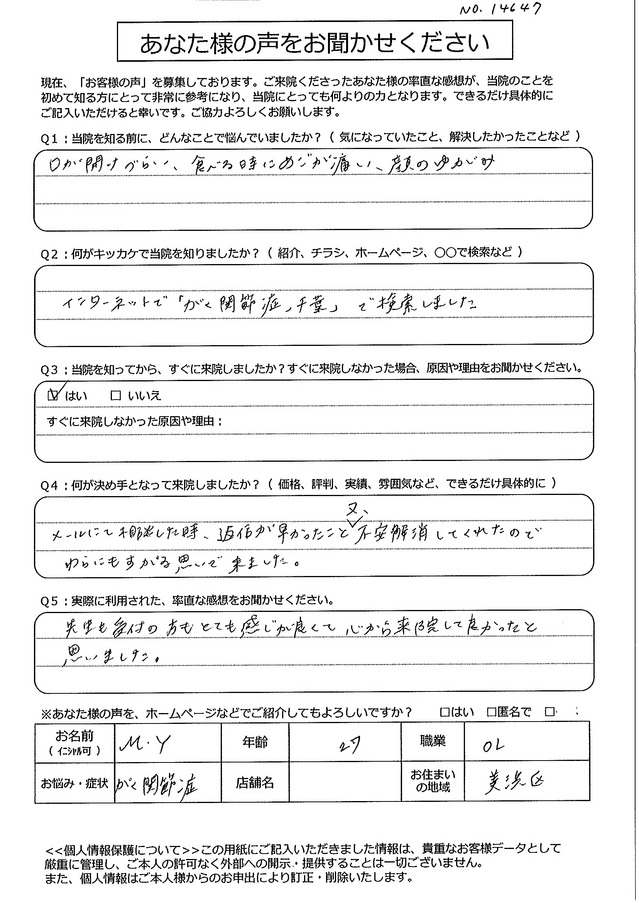 NO. 14647
あなた様の声をお聞かせください
現在、「お客様の声」を募集しております。ご来院くださったあなた様の率直な感想が、当院のことを
初めて知る方にとって非常に参考になり、当院にとっても何よりの力となります。できるだけ具体的に
ご記入いただけると幸いです。ご協力よろしくお願いします。
Q1：当院を知る前に、どんなことで悩んでいましたか？（ 気になっていたこと、解決したかったことなど ）
口が開けづらい、食べる時にあごが痛い、顔のゆがみ
Q2：何がキッカケで当院を知りましたか？（ 紹介、チラシ、ホームページ、〇〇で検索など ）
インターネットで「がく関節症，千葉」で検索しました
Q3：当院を知ってから、すぐに来院しましたか？すぐに来院しなかった場合、原因や理由をお聞かせください。
☑ はい　☐ いいえ
すぐに来院しなかった原因や理由：
Q4：何が決め手となって来院しましたか？（ 価格、評判、実績、雰囲気など、できるだけ具体的に ）
又、
メールにて相談した時、返信が早かったこと 不安解消してくれたので
わらにもすがる思いで来ました。
Q5：実際に利用された、率直な感想をお聞かせください。
先生も受付の方もとても感じが良くて 心から来院して良かったと
思いました。
※あなた様の声を、ホームページなどでご紹介してもよろしいですか？　☐はい　☐匿名で　☐
お名前（ ｲﾆｼｬﾙ可 ） M・Y 年齢 27 職業 OL
お悩み・症状 がく関節症 店舗名 お住まいの地域 美浜区
<<個人情報保護について>>この用紙にご記入いただきました情報は、貴重なお客様データとして
厳重に管理し、ご本人の許可なく外部への開示・提供することは一切ございません。
また、個人情報はご本人様からのお申出により訂正・削除いたします。